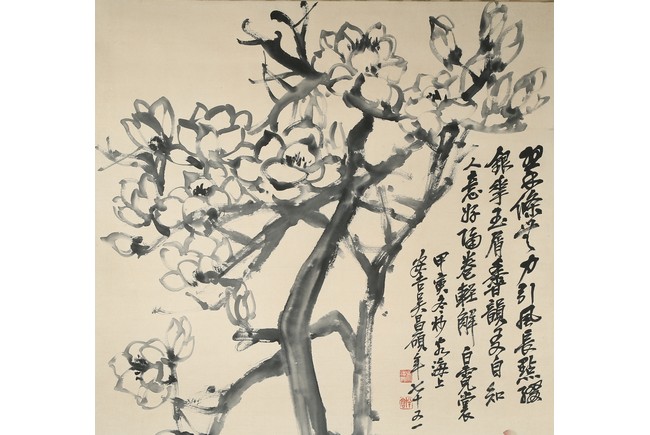 翠條無力引風長點綴
銀華玉屑香韻友自知
人意好隔卷輕解白霓裳
甲寅冬杪客海上
安吉吳昌碩年七十又一